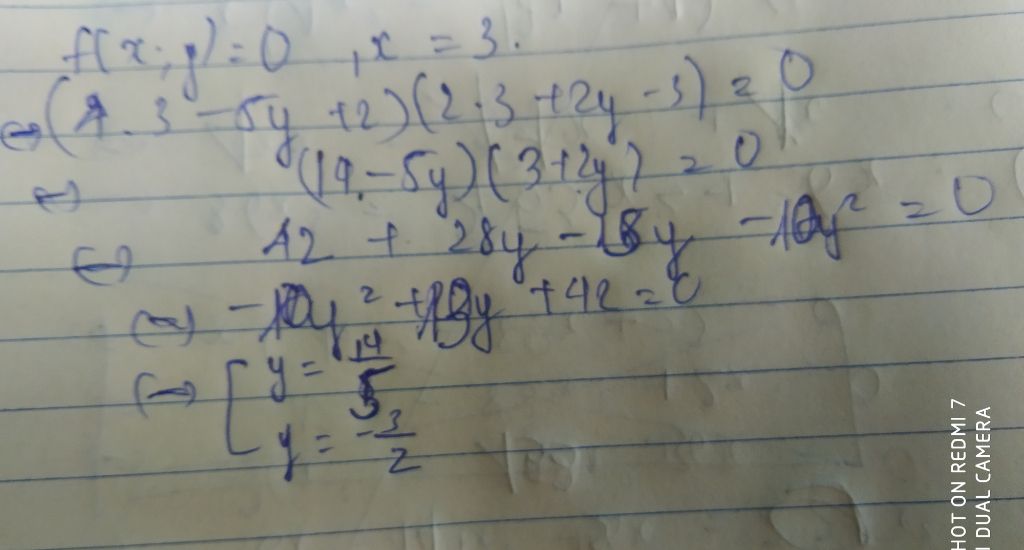 f(x; y) = 0 , x = 3.
⇔ (4.3 - 5y + 2)(2.3 + 2y - 3) = 0
⇔ (14 - 5y)(3 + 2y) = 0
⇔ 42 + 28y - 15y - 10y² = 0
⇔ -10y² + 13y + 42 = 0
⇔ [ y = 14/5
y = -3/2
SHOT ON REDMI 7
AI DUAL CAMERA